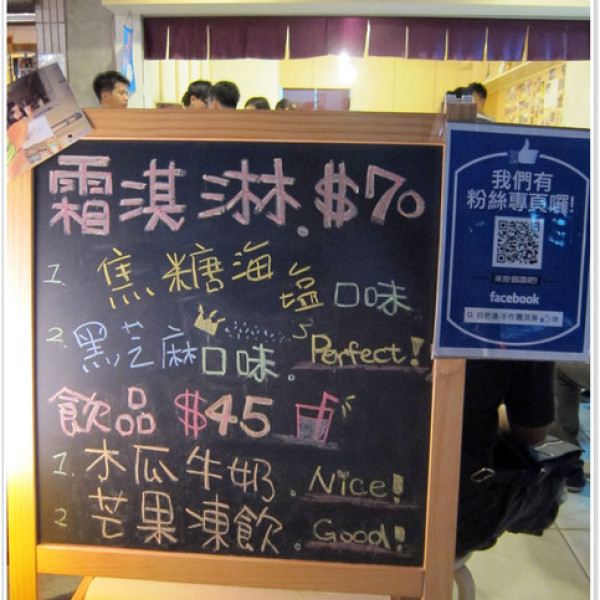 霜淇淋.$70
1. 焦糖海塩口味
2. 黑芝麻口味。Perfect!
飲品 $45
1. 木瓜牛奶. Nice!
2 芒果凍飲。Good!
我們有
粉絲專頁囉!
facebook